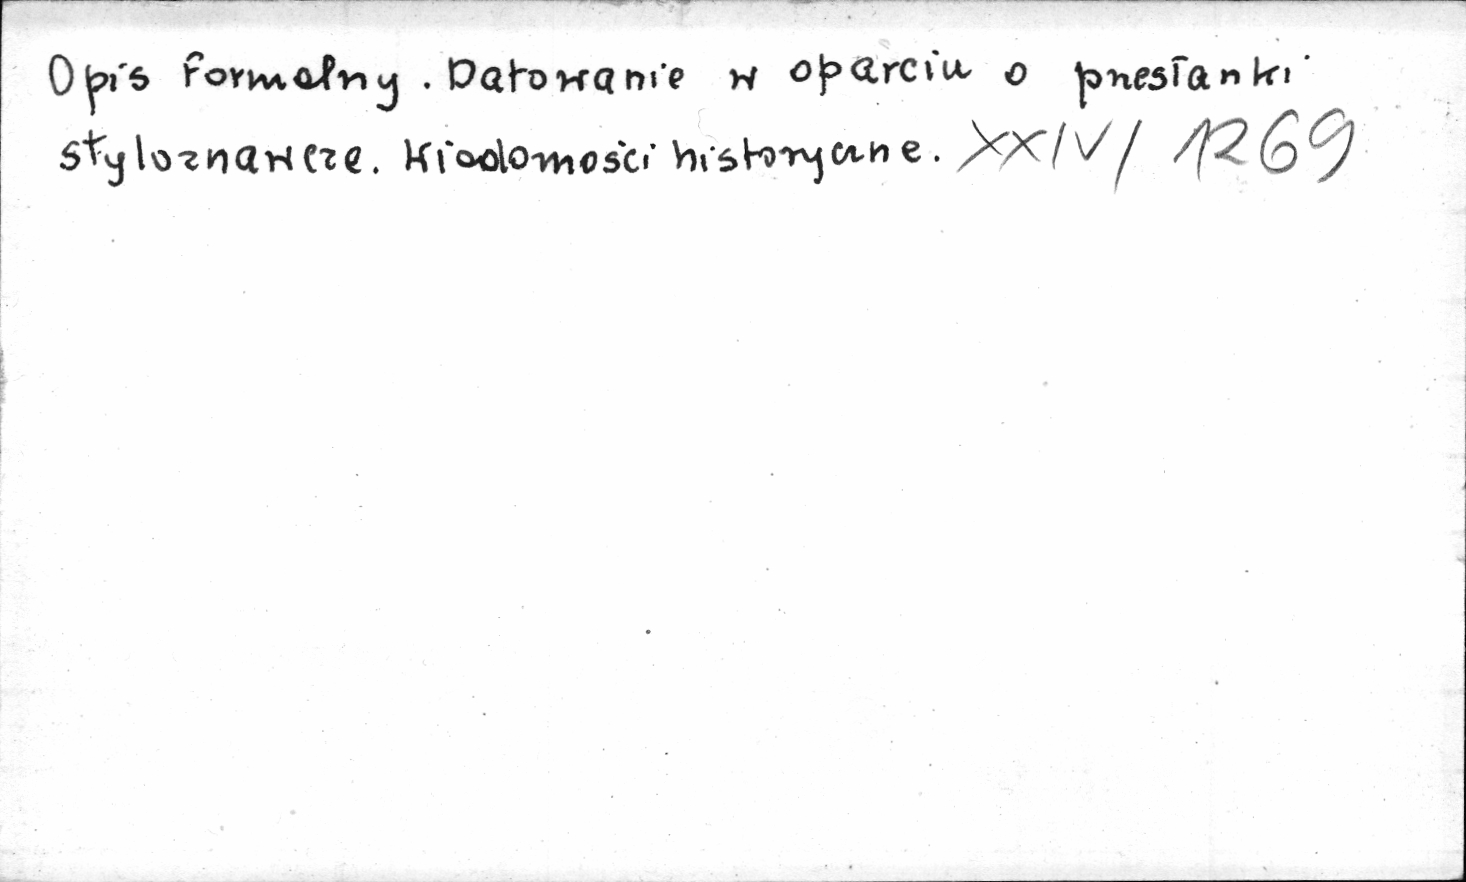 Opis formalny. Datowanie w oparciu o przesłanki
styloznawcze. Wiadomości historyczne. XXIV/ 1269